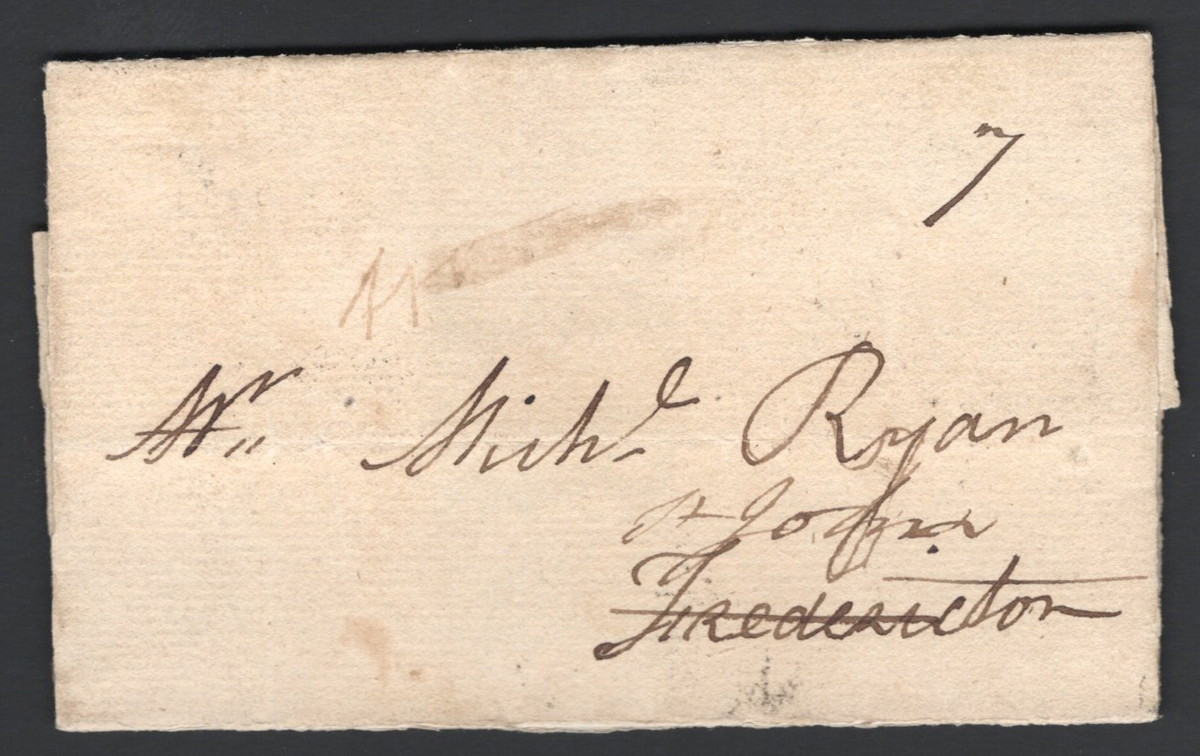 7
Mr Michl Ryan
St John
Fredericton